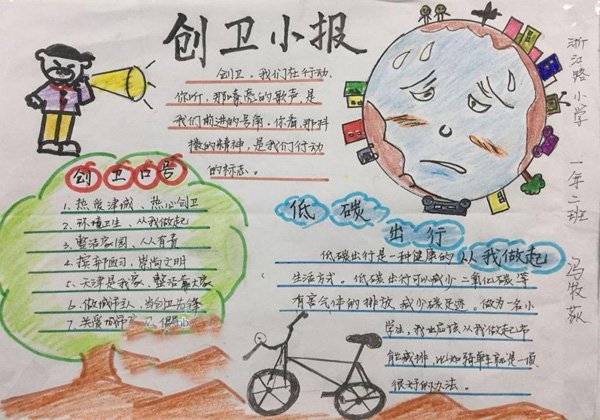 创卫小报
创卫，我们在行动，
你听，那嘹亮的歌声，是
我们前进的号角，你看，那抖
擞的精神，是我们行动
的标志。
创卫口号
1、热爱津城、热心创卫
2、环境卫生、从我做起
3、整洁家园、人人有责
4、摈弃陋习、崇尚文明
5、天津是我家、整洁靠大家
6、做城市主人、当创卫先锋
7、关爱城市
低碳出行
从我做起
低碳出行是一种健康的
生活方式。低碳出行可以减少二氧化碳等
有害气体的排放，减少碳足迹。做为一名小
学生，我也应该从我做起节
能减排，比如骑单车就是一项
很好的办法。
浙江路小学 一年二班 冯牧